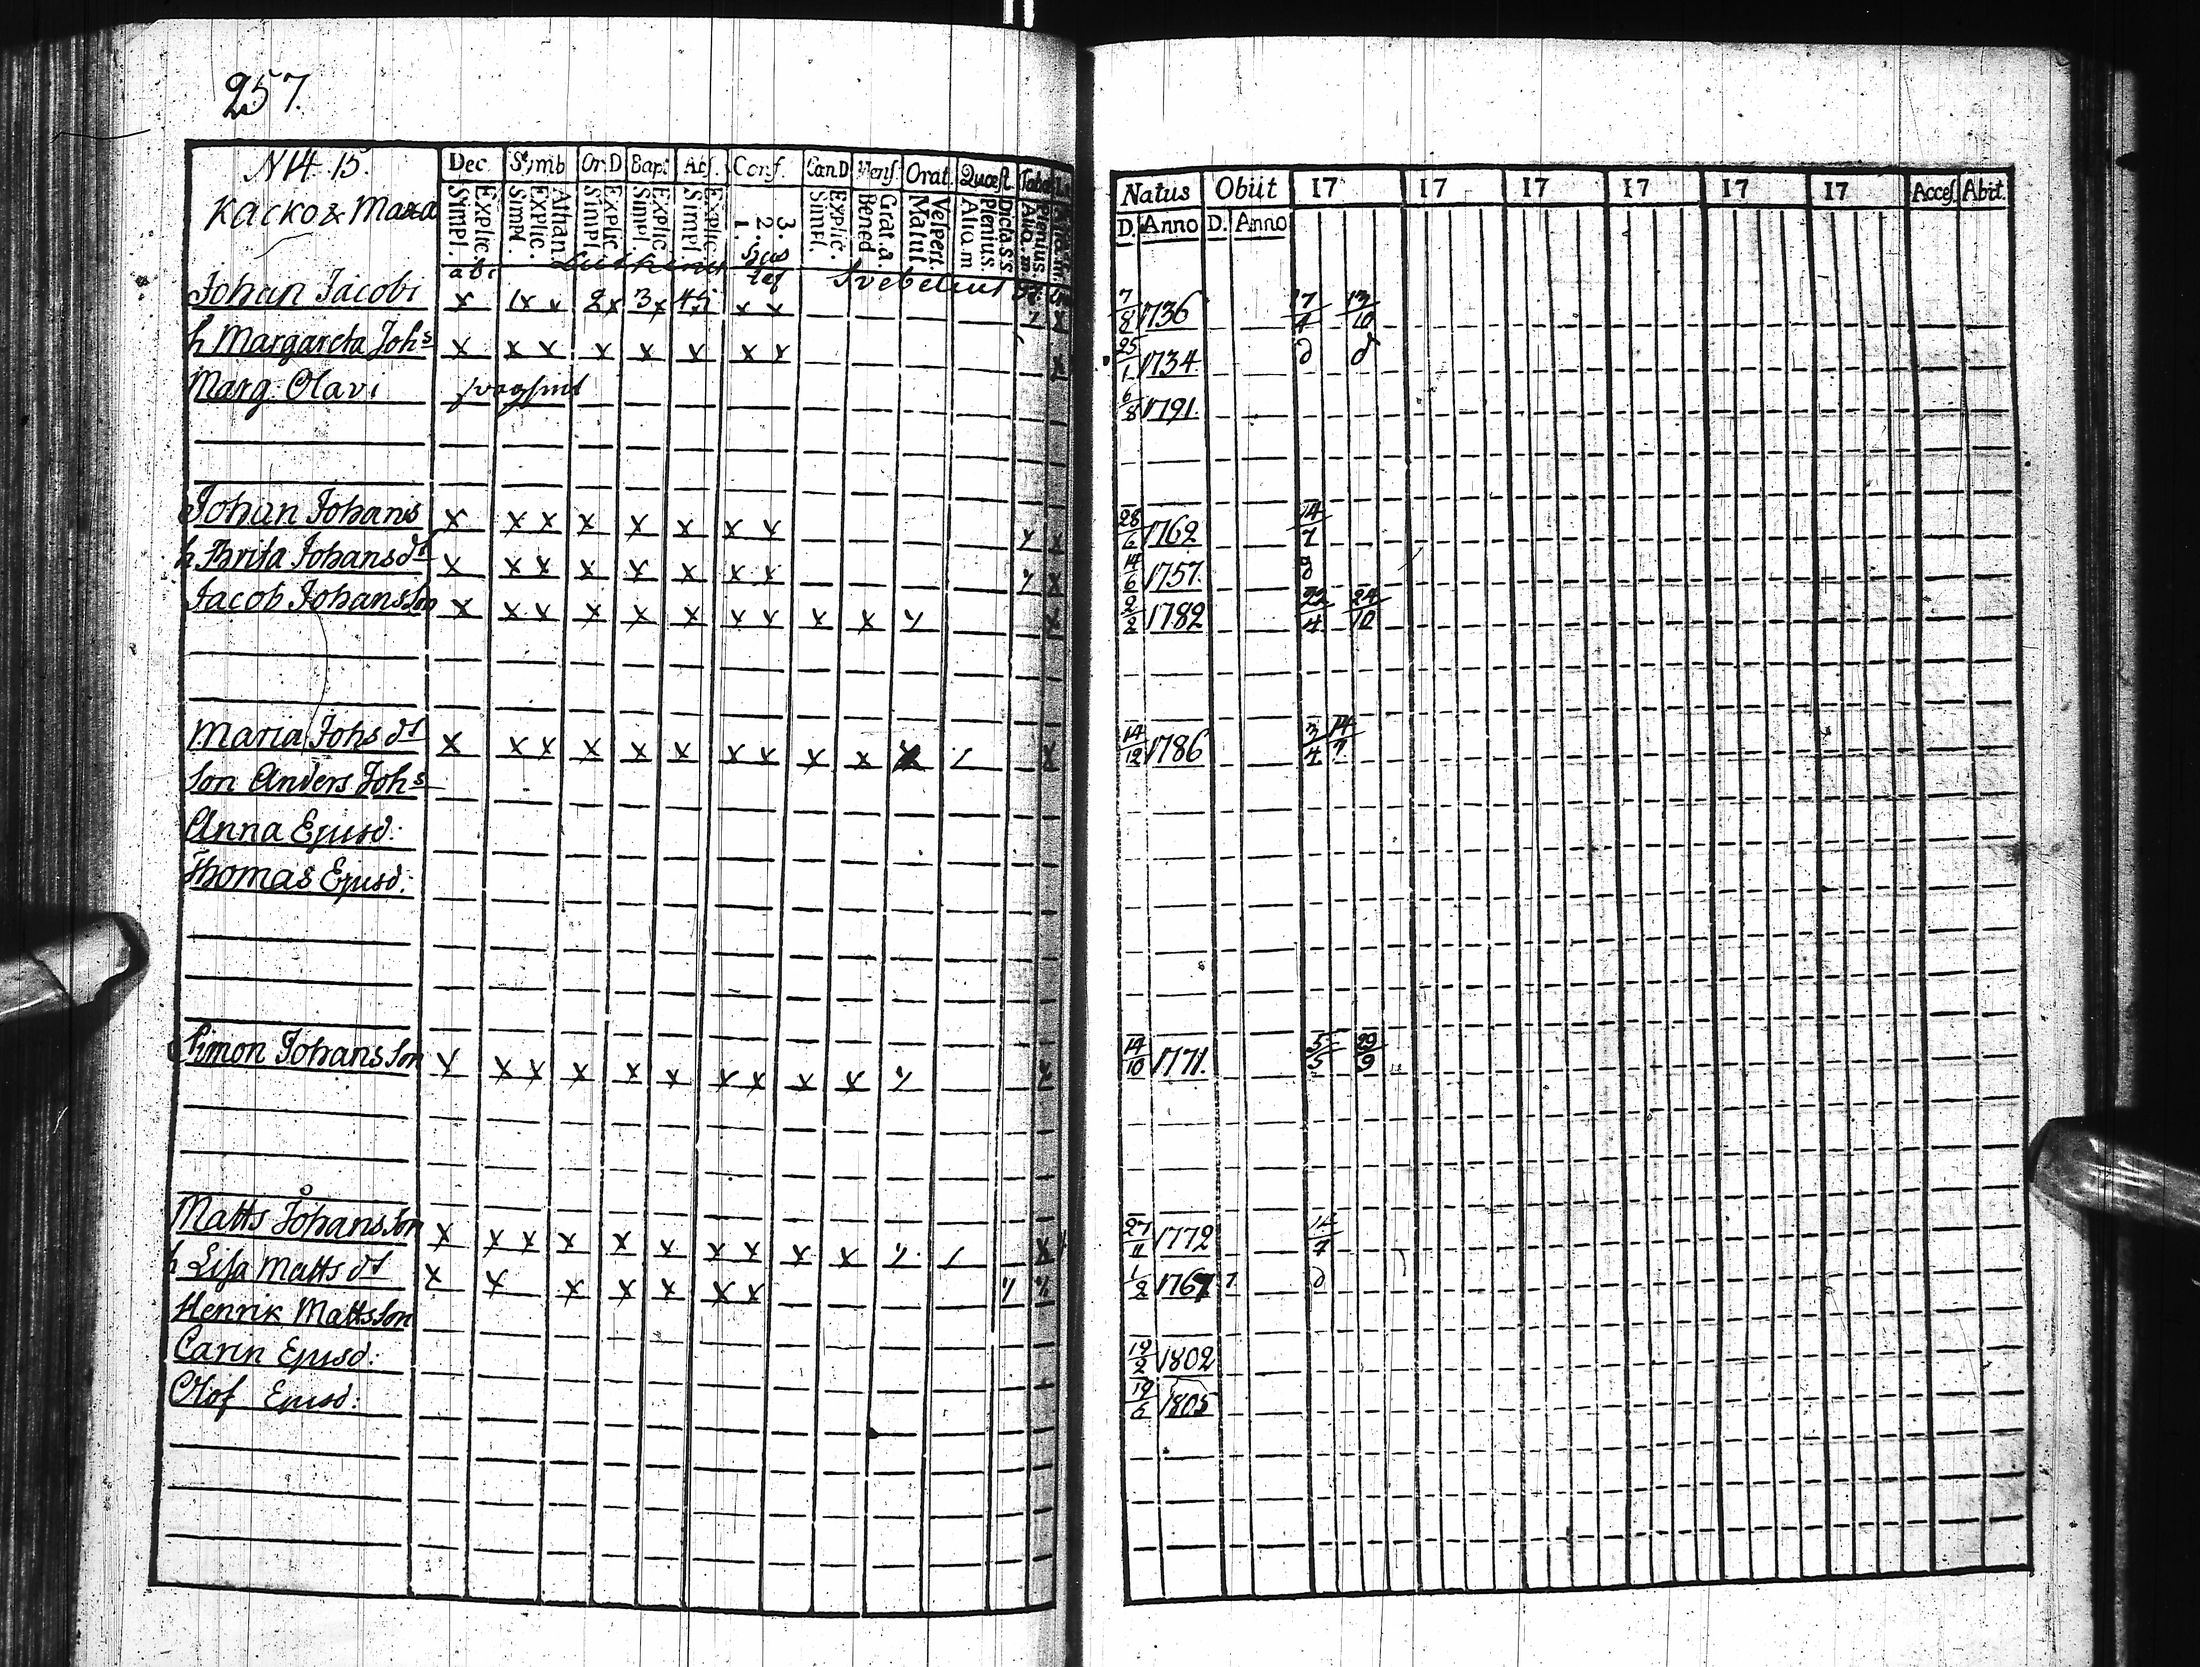 257.
N 14. 15.
Kacko & Maza
Dec. Symb. Or. D. Bapt. Abs. Conf. Can D. Mens. Orat. Quæst. Tabb.
Simpl. Explic. Simpl. Explic. Athan. Simpl. Explic. Simpl. Explic. Simpl. Explic. 1. 2. 3. Simpl. Explic. Bened. Grat. a. Matut. Vespert. Aliq. m. Plenius. Dicta S S. Aliq. m. Plenius.
abc Lutheri Svebelius
Johan Jacobi x 1x x 2x 3x x x x
h Margareta Johs x x x x x x x x
Marg. Olavi
Johan Johans x x x x x x x x
h Brita Johansdt x x x x x x x x
Jacob Johansson x x x x x x x x x x
Maria Johsdt x x x x x x x x x x
Son Anders Johs
Anna Ejusd:
Thomas Ejusd:
Simon Johansson x x x x x x x x x x
Matts Johansson x x x x x x x x x x
h Lisa Mattsdt x x x x x x x
Henrik Mattsson
Carin Ejusd:
Olof Ejusd:
Natus Obiit 17 17 17 17 17 17 Access. Abit.
D. Anno D. Anno
7/8 1736 17/4 13/10
25/1 1734 d d
6/8 1791.
28/6 1762 14/7
14/6 1757. d
2/2 1782 22/4 24/10
14/12 1786 3/4 14/7
14/10 1771. 5/5 29/9
27/11 1772 14/7
1/2 1767 d
12/2 1802
19/6 1805